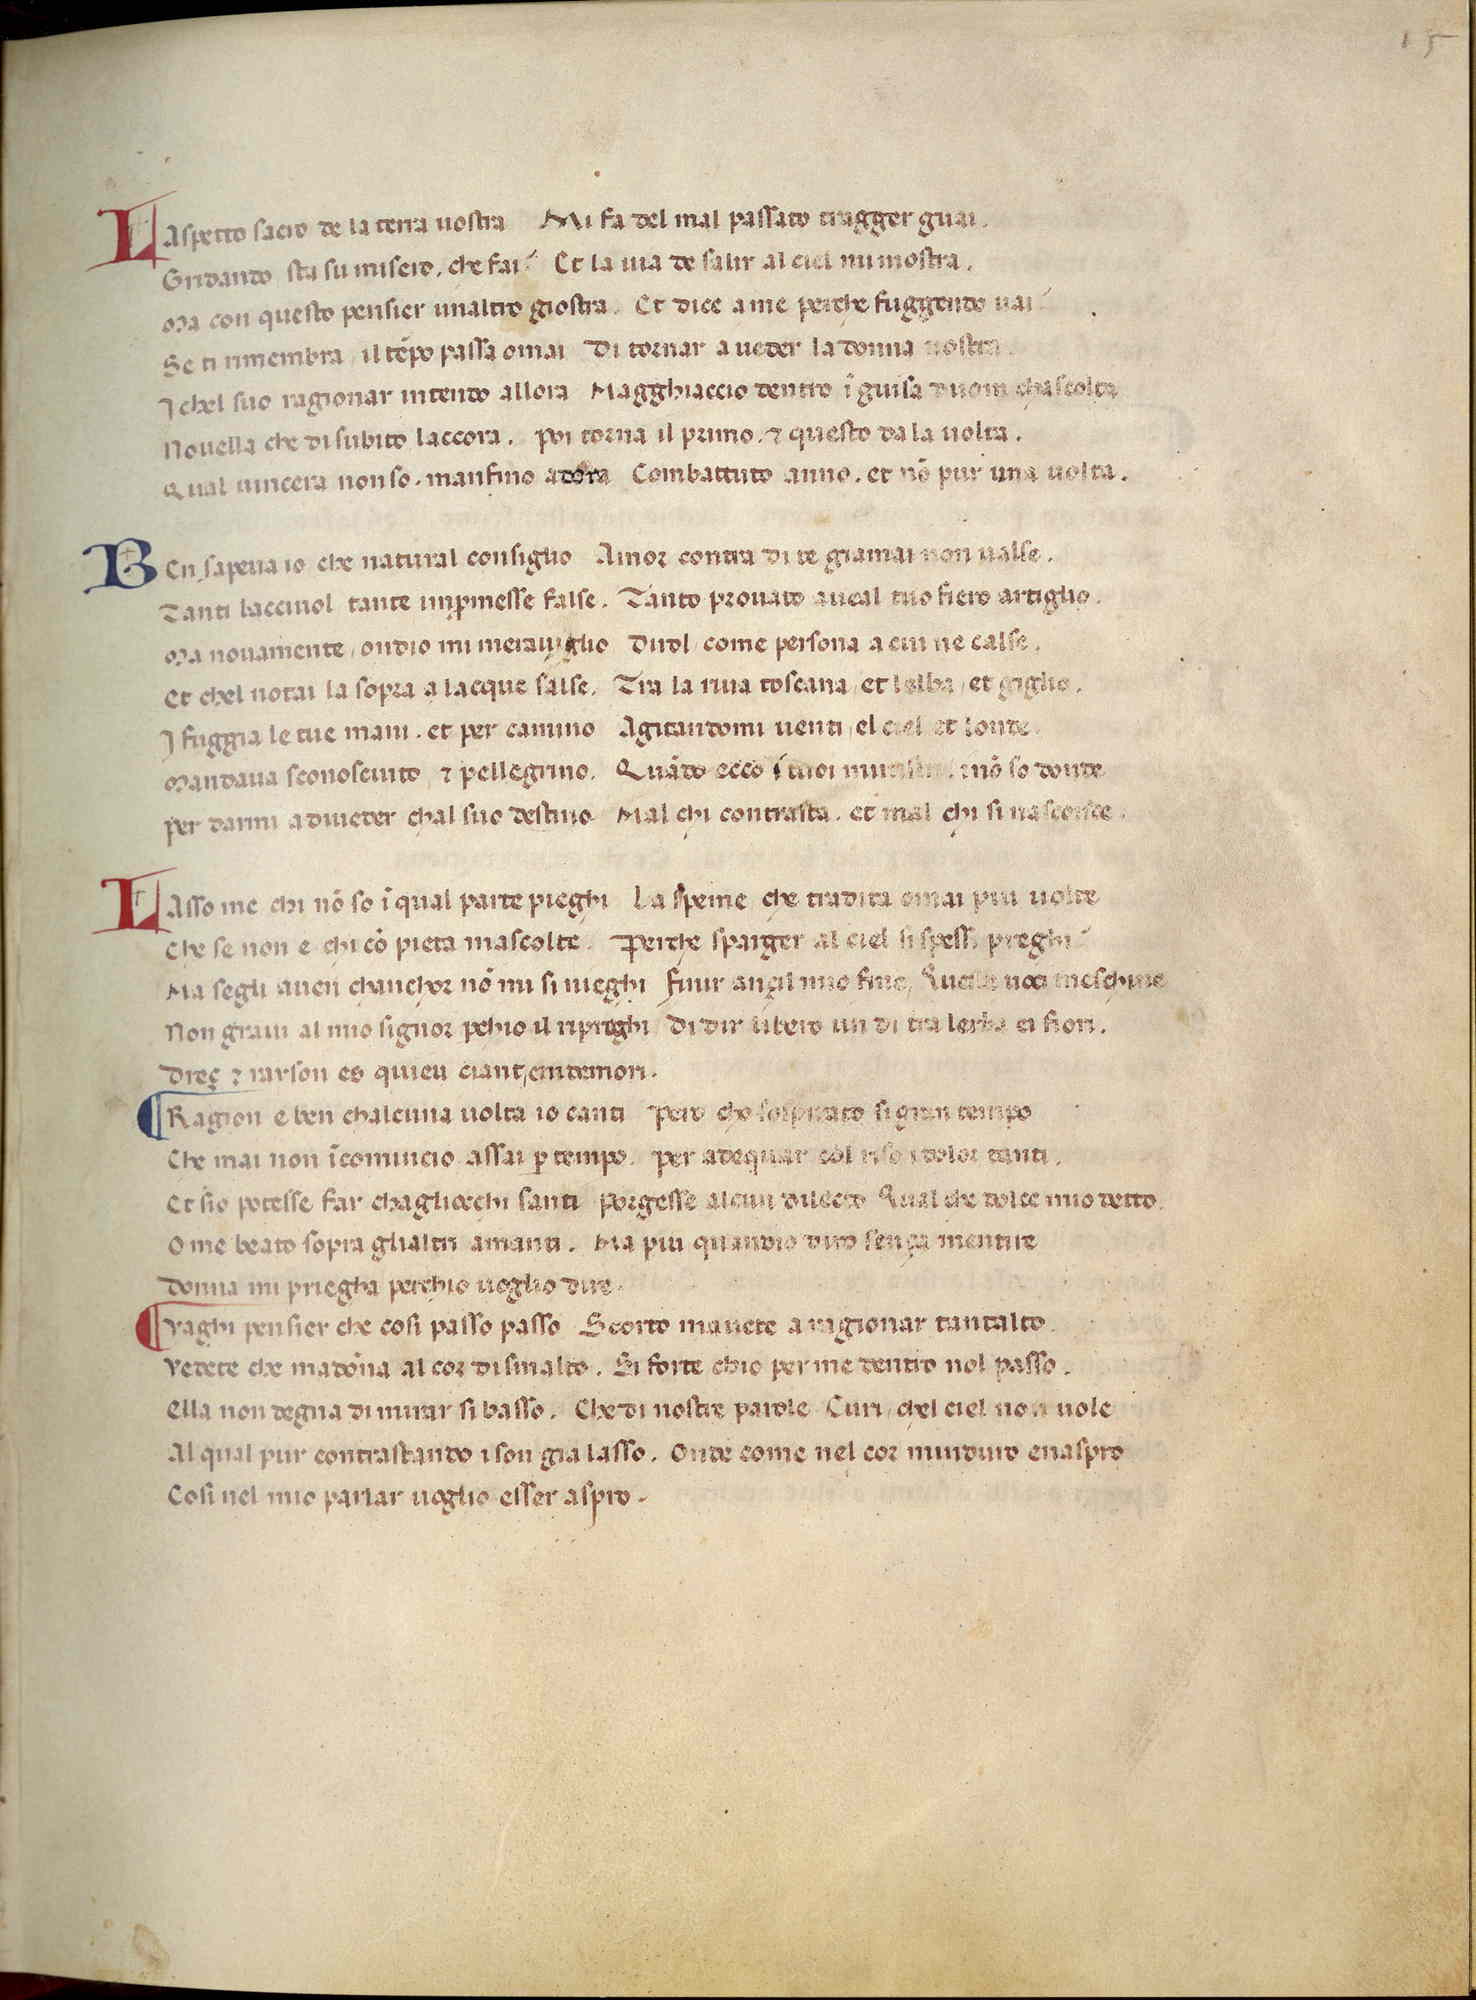 15
LAspetto sacro de la terra uostra Mi fa del mal passato tragger guai.
Gridando sta su misero. che fai? Et la uia de salir al ciel mi mostra.
Ma con questo pensier unaltro giostra. Et dice a me perche fuggendo uai?
Se ti rimembra / il tẽpo passa omai Di tornar a ueder la donna nostra.
I chel suo ragionar intendo allora Magghiaccio dentro ĩ guisa duom chascolta
Nouella che di subito laccora. Poi torna il primo. ⁊ questo da la uolta.
Qual uincera non so. manfino adora Combattuto anno. et nõ pur una uolta.
BEn sapeua io che natural consiglio Amor contra di te giamai non ualse.
Tanti lacciuol tante impromesse false. Tanto prouato aueal tuo fiero artiglio.
Ma nouamente / ondio mi merauiglio Dirol / come persona a cui ne calse.
Et chel notai la sopra a lacque salse. Tra la riua toscana / et lelba / et giglio.
I fuggia le tue mani. et per camino Agitandomi uenti / el ciel et londe.
Mandaua sconosciuto ⁊ pellegrino. Quãdo ecco i tuoi ministri. i nõ so donde
Per darmi a diueder chal suo destino Mal chi contrasta. et mal chi si nasconde.
LAsso me chi nõ so ĩ qual parte pieghi La speme che tradita omai piu uolte
Che se non e chi cõ pieta mascolte. Perche sparger al ciel si spessi preghi?
Ma segli auen chanchor nõ mi si nieghi Finir anzil mio fine. Queste uoci meschine
Non graui al mio signor perchio il ripreghi Di dir libero un di tra lerba ei fiori.
Dreç ⁊ rayson es quieu ciant emdemori.
Ragion e ben chalcuna uolta io canti Pero cho sospirato si gran tempo
Che mai non ĩcomincio assai per tempo. Per adequar col riso i dolor tanti.
Et sio potesse far chagliocchi santi Porgesse alcun dilecto Qual che dolce mio detto.
O me beato sopra glialtri amanti. Ma piu quandio diro sença mentire
Donna mi priegha perchio uoglio dire.
Vaghi pensier che cosi passo passo Scorto mauete a ragionar tantalto.
Vedete che madõna al cor di smalto. Si forte chio per me dentro nol passo.
Ella non degna di mirar si basso. Che di nostre parole Curi / chel ciel non uole
Al qual pur contrastando i son gia lasso. Onde come nel cor minduro enaspro
Cosi nel mio parlar uoglio esser aspro.